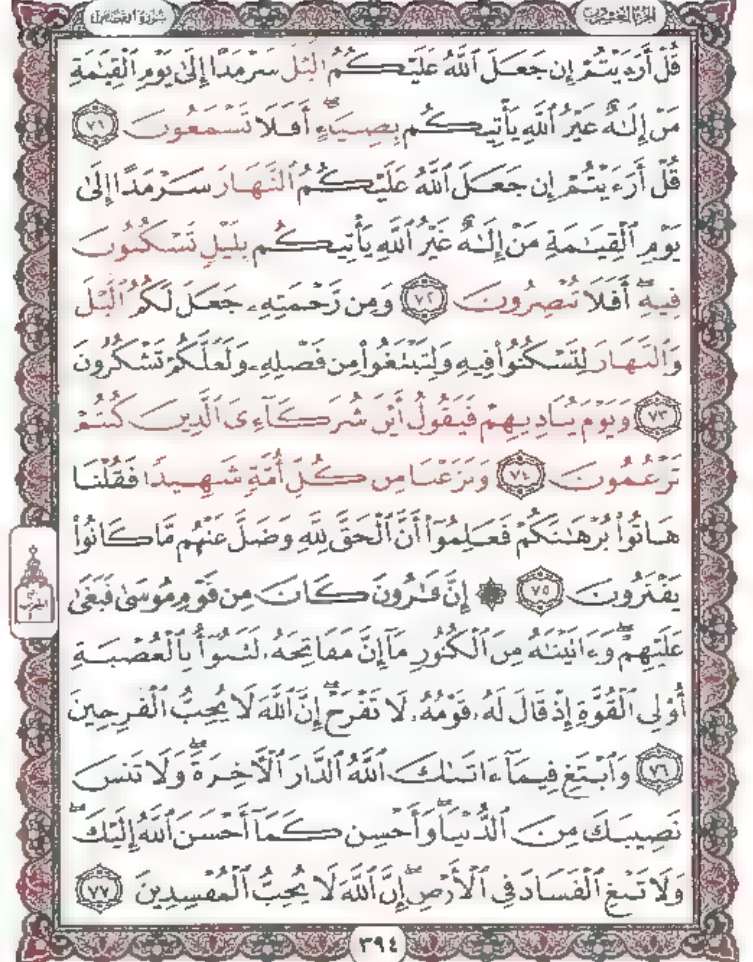 سُورَةُ القَصَصِ الجُزْءُ العِشْرُونَ
قُلْ أَرَءَيْتُمْ إِن جَعَلَ ٱللَّهُ عَلَيْكُمُ ٱلَّيْلَ سَرْمَدًا إِلَىٰ يَوْمِ ٱلْقِيَٰمَةِ
مَنْ إِلَٰهٌ غَيْرُ ٱللَّهِ يَأْتِيكُم بِضِيَآءٍ أَفَلَا تَسْمَعُونَ ٧١
قُلْ أَرَءَيْتُمْ إِن جَعَلَ ٱللَّهُ عَلَيْكُمُ ٱلنَّهَارَ سَرْمَدًا إِلَىٰ
يَوْمِ ٱلْقِيَٰمَةِ مَنْ إِلَٰهٌ غَيْرُ ٱللَّهِ يَأْتِيكُم بِلَيْلٍ تَسْكُنُونَ
فِيهِ أَفَلَا تُبْصِرُونَ ٧٢ وَمِن رَّحْمَتِهِۦ جَعَلَ لَكُمُ ٱلَّيْلَ
وَٱلنَّهَارَ لِتَسْكُنُوا۟ فِيهِ وَلِتَبْتَغُوا۟ مِن فَضْلِهِۦ وَلَعَلَّكُمْ تَشْكُرُونَ
٧٣ وَيَوْمَ يُنَادِيهِمْ فَيَقُولُ أَيْنَ شُرَكَآءِىَ ٱلَّذِينَ كُنتُمْ
تَزْعُمُونَ ٧٤ وَنَزَعْنَا مِن كُلِّ أُمَّةٍ شَهِيدًا فَقُلْنَا
هَاتُوا۟ بُرْهَٰنَكُمْ فَعَلِمُوٓا۟ أَنَّ ٱلْحَقَّ لِلَّهِ وَضَلَّ عَنْهُم مَّا كَانُوا۟
يَفْتَرُونَ ٧٥ ۞ إِنَّ قَٰرُونَ كَانَ مِن قَوْمِ مُوسَىٰ فَبَغَىٰ
عَلَيْهِمْ وَءَاتَيْنَٰهُ مِنَ ٱلْكُنُوزِ مَآ إِنَّ مَفَاتِحَهُۥ لَتَنُوٓأُ بِٱلْعُصْبَةِ
أُو۟لِى ٱلْقُوَّةِ إِذْ قَالَ لَهُۥ قَوْمُهُۥ لَا تَفْرَحْ إِنَّ ٱللَّهَ لَا يُحِبُّ ٱلْفَرِحِينَ
٧٦ وَٱبْتَغِ فِيمَآ ءَاتَىٰكَ ٱللَّهُ ٱلدَّارَ ٱلْءَاخِرَةَ وَلَا تَنسَ
نَصِيبَكَ مِنَ ٱلدُّنْيَا وَأَحْسِن كَمَآ أَحْسَنَ ٱللَّهُ إِلَيْكَ
وَلَا تَبْغِ ٱلْفَسَادَ فِى ٱلْأَرْضِ إِنَّ ٱللَّهَ لَا يُحِبُّ ٱلْمُفْسِدِينَ ٧٧
٣٩٤